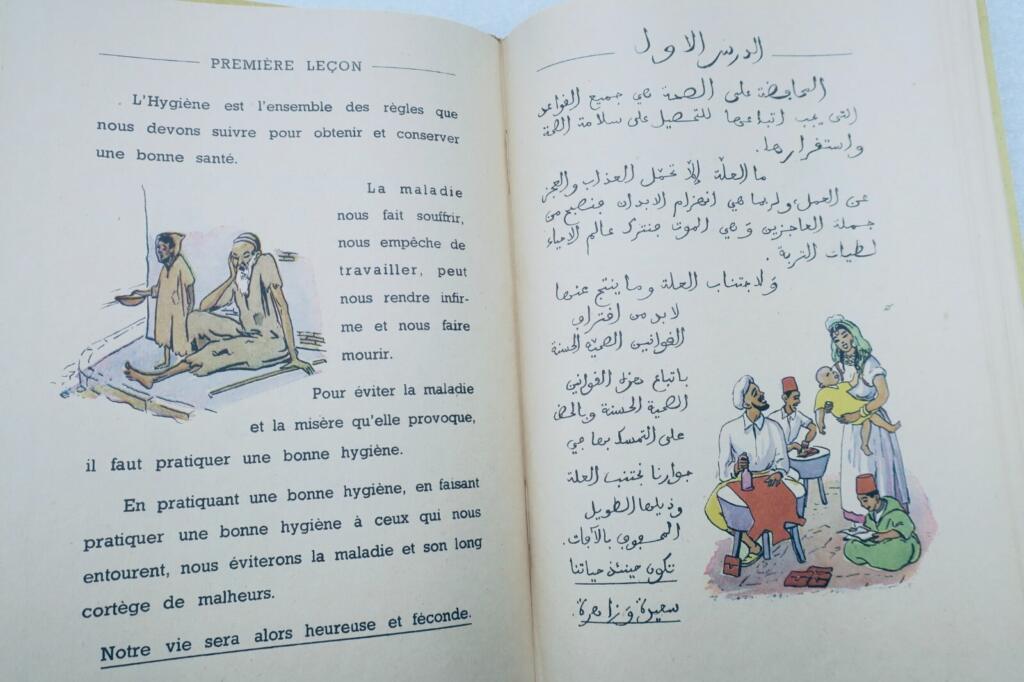 PREMIÈRE LEÇON
L'Hygiène est l'ensemble des règles que
nous devons suivre pour obtenir et conserver
une bonne santé.
La maladie
nous fait souffrir,
nous empêche de
travailler, peut
nous rendre infir-
me et nous faire
mourir.
Pour éviter la maladie
et la misère qu'elle provoque,
il faut pratiquer une bonne hygiène.
En pratiquant une bonne hygiène, en faisant
pratiquer une bonne hygiène à ceux qui nous
entourent, nous éviterons la maladie et son long
cortège de malheurs.
Notre vie sera alors heureuse et féconde.
الدرس الاول
المحافظة على الصحة هي جميع القواعد
التي يجب اتباعها للتحصيل على سلامة الصحة
واستقرارها.
ما العلّة إلاّ تحمّل العذاب والعجز
عن العمل، ولربما هي انهزام الابدان فنصبح من
جملة العاجزين وهي الموت فنترك عالم الاحياء
لطيات التربة.
ولاجتناب العلة وما ينتج عنها
لا بد من
القوانين الصحيّة الحسنة
باتباع هذه القوانين
الصحية الحسنة وبالحض
على التمسك بها في
جوارنا نجتنب العلة
وذيلها الطويل
بالآفات.
تكون حينئذ حياتنا
سعيدة وزاهرة.